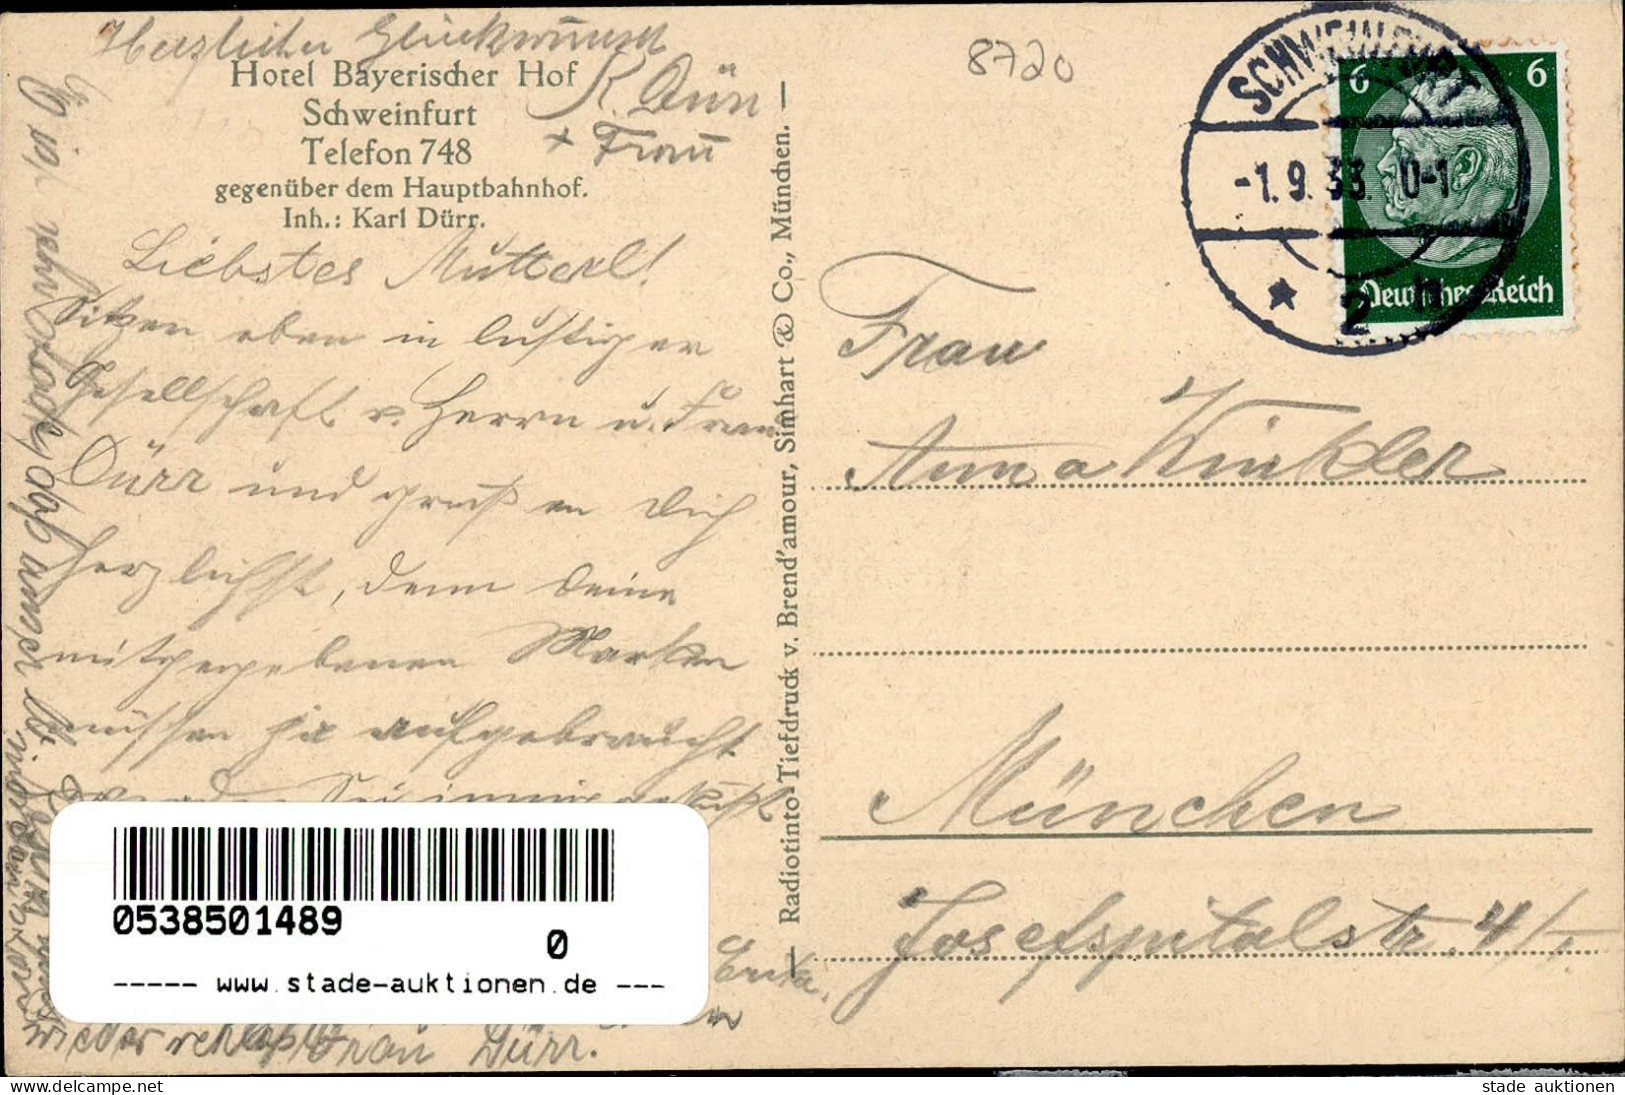 Herzlichen Glückwunsch
Hotel Bayerischer Hof
K. Dürr
Schweinfurt
+ Frau
Telefon 748
gegenüber dem Hauptbahnhof.
Inh.: Karl Dürr.
Liebstes Mutterl!
Sitzen eben in lustiger
Gesellschaft v. Herrn u. Frau
Dürr und grüßen Dich
herzlichst, denn Deine
mitgegebenen Marken
müssen ja aufgebraucht
werden. Sei innig geküßt
Frau Dürr.
Radiotinto-Tiefdruck v. Brend'amour, Simhart & Co., München.
8720
SCHWEINFURT
-1.9.33. 0-1
* 2 h
6 6
Deutsches Reich
Frau
Anna Winkler
München
Josefspitalstr. 4/I.
0538501489
0
----- www.stade-auktionen.de ---
www.delcampe.net
stade auktionen